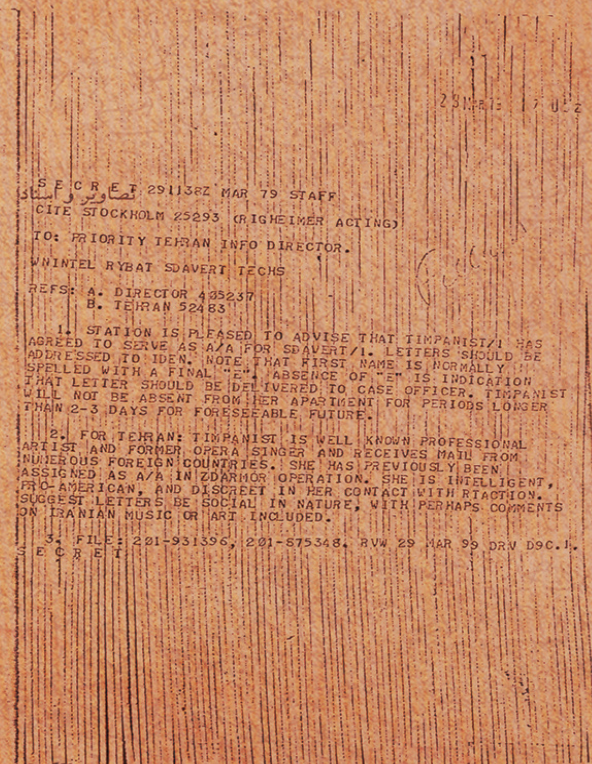 S E C R E T 291138Z MAR 79 STAFF
تصاویر و اسناد
CITE STOCKHOLM 25293 (RIGHEIMER ACTING)
TO: PRIORITY TEHRAN INFO DIRECTOR.
WNINTEL RYBAT SDAVERT TECHS
REFS: A. DIRECTOR 405237
B. TEHRAN 52483
1. STATION IS PLEASED TO ADVISE THAT TIMPANIST/1 HAS
AGREED TO SERVE AS A/A FOR SDAVERT/1. LETTERS SHOULD BE
ADDRESSED TO IDEN. NOTE THAT FIRST NAME IS NORMALLY
SPELLED WITH A FINAL "E". ABSENCE OF "E" IS INDICATION
THAT LETTER SHOULD BE DELIVERED TO CASE OFFICER. TIMPANIST
WILL NOT BE ABSENT FROM HER APARTMENT FOR PERIODS LONGER
THAN 2-3 DAYS FOR FORESEEABLE FUTURE.
2. FOR TEHRAN: TIMPANIST IS WELL KNOWN PROFESSIONAL
ARTIST AND FORMER OPERA SINGER AND RECEIVES MAIL FROM
NUMEROUS FOREIGN COUNTRIES. SHE HAS PREVIOUSLY BEEN
ASSIGNED AS A/A IN ZDARMOR OPERATION. SHE IS INTELLIGENT,
PRO-AMERICAN, AND DISCREET IN HER CONTACT WITH RTACTION.
SUGGEST LETTERS BE SOCIAL IN NATURE, WITH PERHAPS COMMENTS
ON IRANIAN MUSIC OR ART INCLUDED.
3. FILE: 201-931396, 201-875348. RVW 29 MAR 99 DRV D9C.1.
S E C R E T